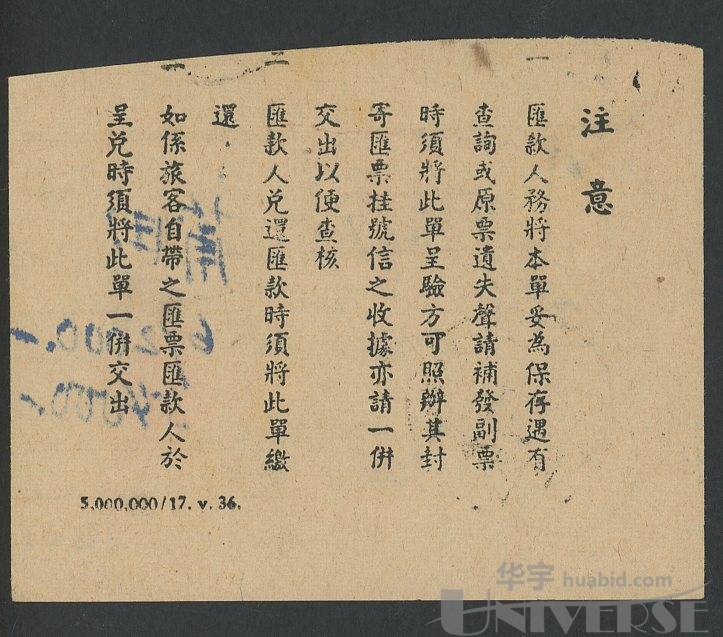 注意
一 匯款人務將本單妥為保存遇有
查詢或原票遺失聲請補發副票
時須將此單呈驗方可照辦其封
寄匯票挂號信之收據亦請一併
交出以便查核
二 匯款人兌還匯款時須將此單繳
還
如係旅客自帶之匯票匯款人於
呈兌時須將此單一併交出
5,000,000/17. v. 36.
华宇 huabid.com
UNIVERSE